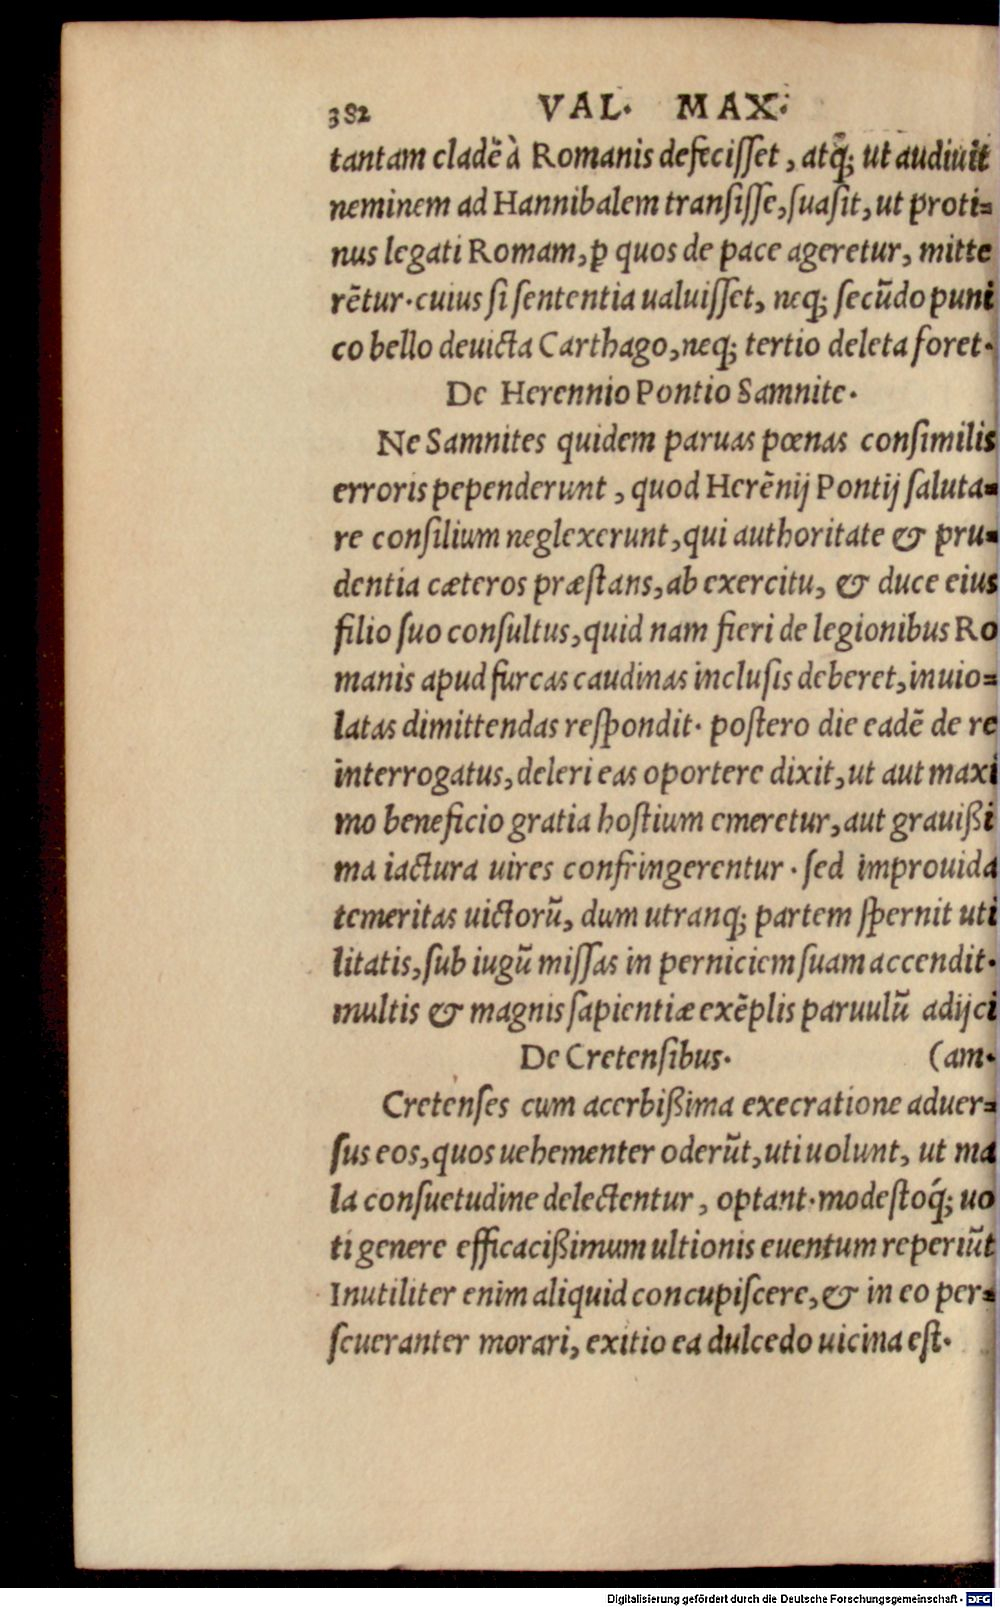 382 VAL. MAX.
tantam cladē à Romanis defecisset, atq́; ut audiuit
neminem ad Hannibalem transisse, suasit, ut proti=
nus legati Romam, ꝑ quos de pace ageretur, mitte
rētur. cuius si sententia ualuisset, neq; secūdo puni
co bello deuicta Carthago, neq; tertio deleta foret.
De Herennio Pontio Samnite.
Ne Samnites quidem paruas pœnas consimilis
erroris pependerunt, quod Herēnij Pontij saluta=
re consilium neglexerunt, qui authoritate & pru=
dentia cæteros præstans, ab exercitu, & duce eius
filio suo consultus, quid nam fieri de legionibus Ro
manis apud furcas caudinas inclusis deberet, inuio=
latas dimittendas respondit. postero die eadē de re
interrogatus, deleri eas oportere dixit, ut aut maxi
mo beneficio gratia hostium emeretur, aut grauißi
ma iactura uires confringerentur. sed improuida
temeritas uictorū, dum utranq; partem spernit uti
litatis, sub iugū missas in perniciem suam accendit.
multis & magnis sapientiæ exēplis paruulū adijci
De Cretensibus. (am.
Cretenses cum acerbißima execratione aduer=
sus eos, quos uehementer oderūt, uti uolunt, ut ma
la consuetudine delectentur, optant. modestoq́; uo
ti genere efficacißimum ultionis euentum reperiūt
Inutiliter enim aliquid concupiscere, & in eo per=
seueranter morari, exitio ea dulcedo uicina est.
Digitalisierung gefördert durch die Deutsche Forschungsgemeinschaft - DFG